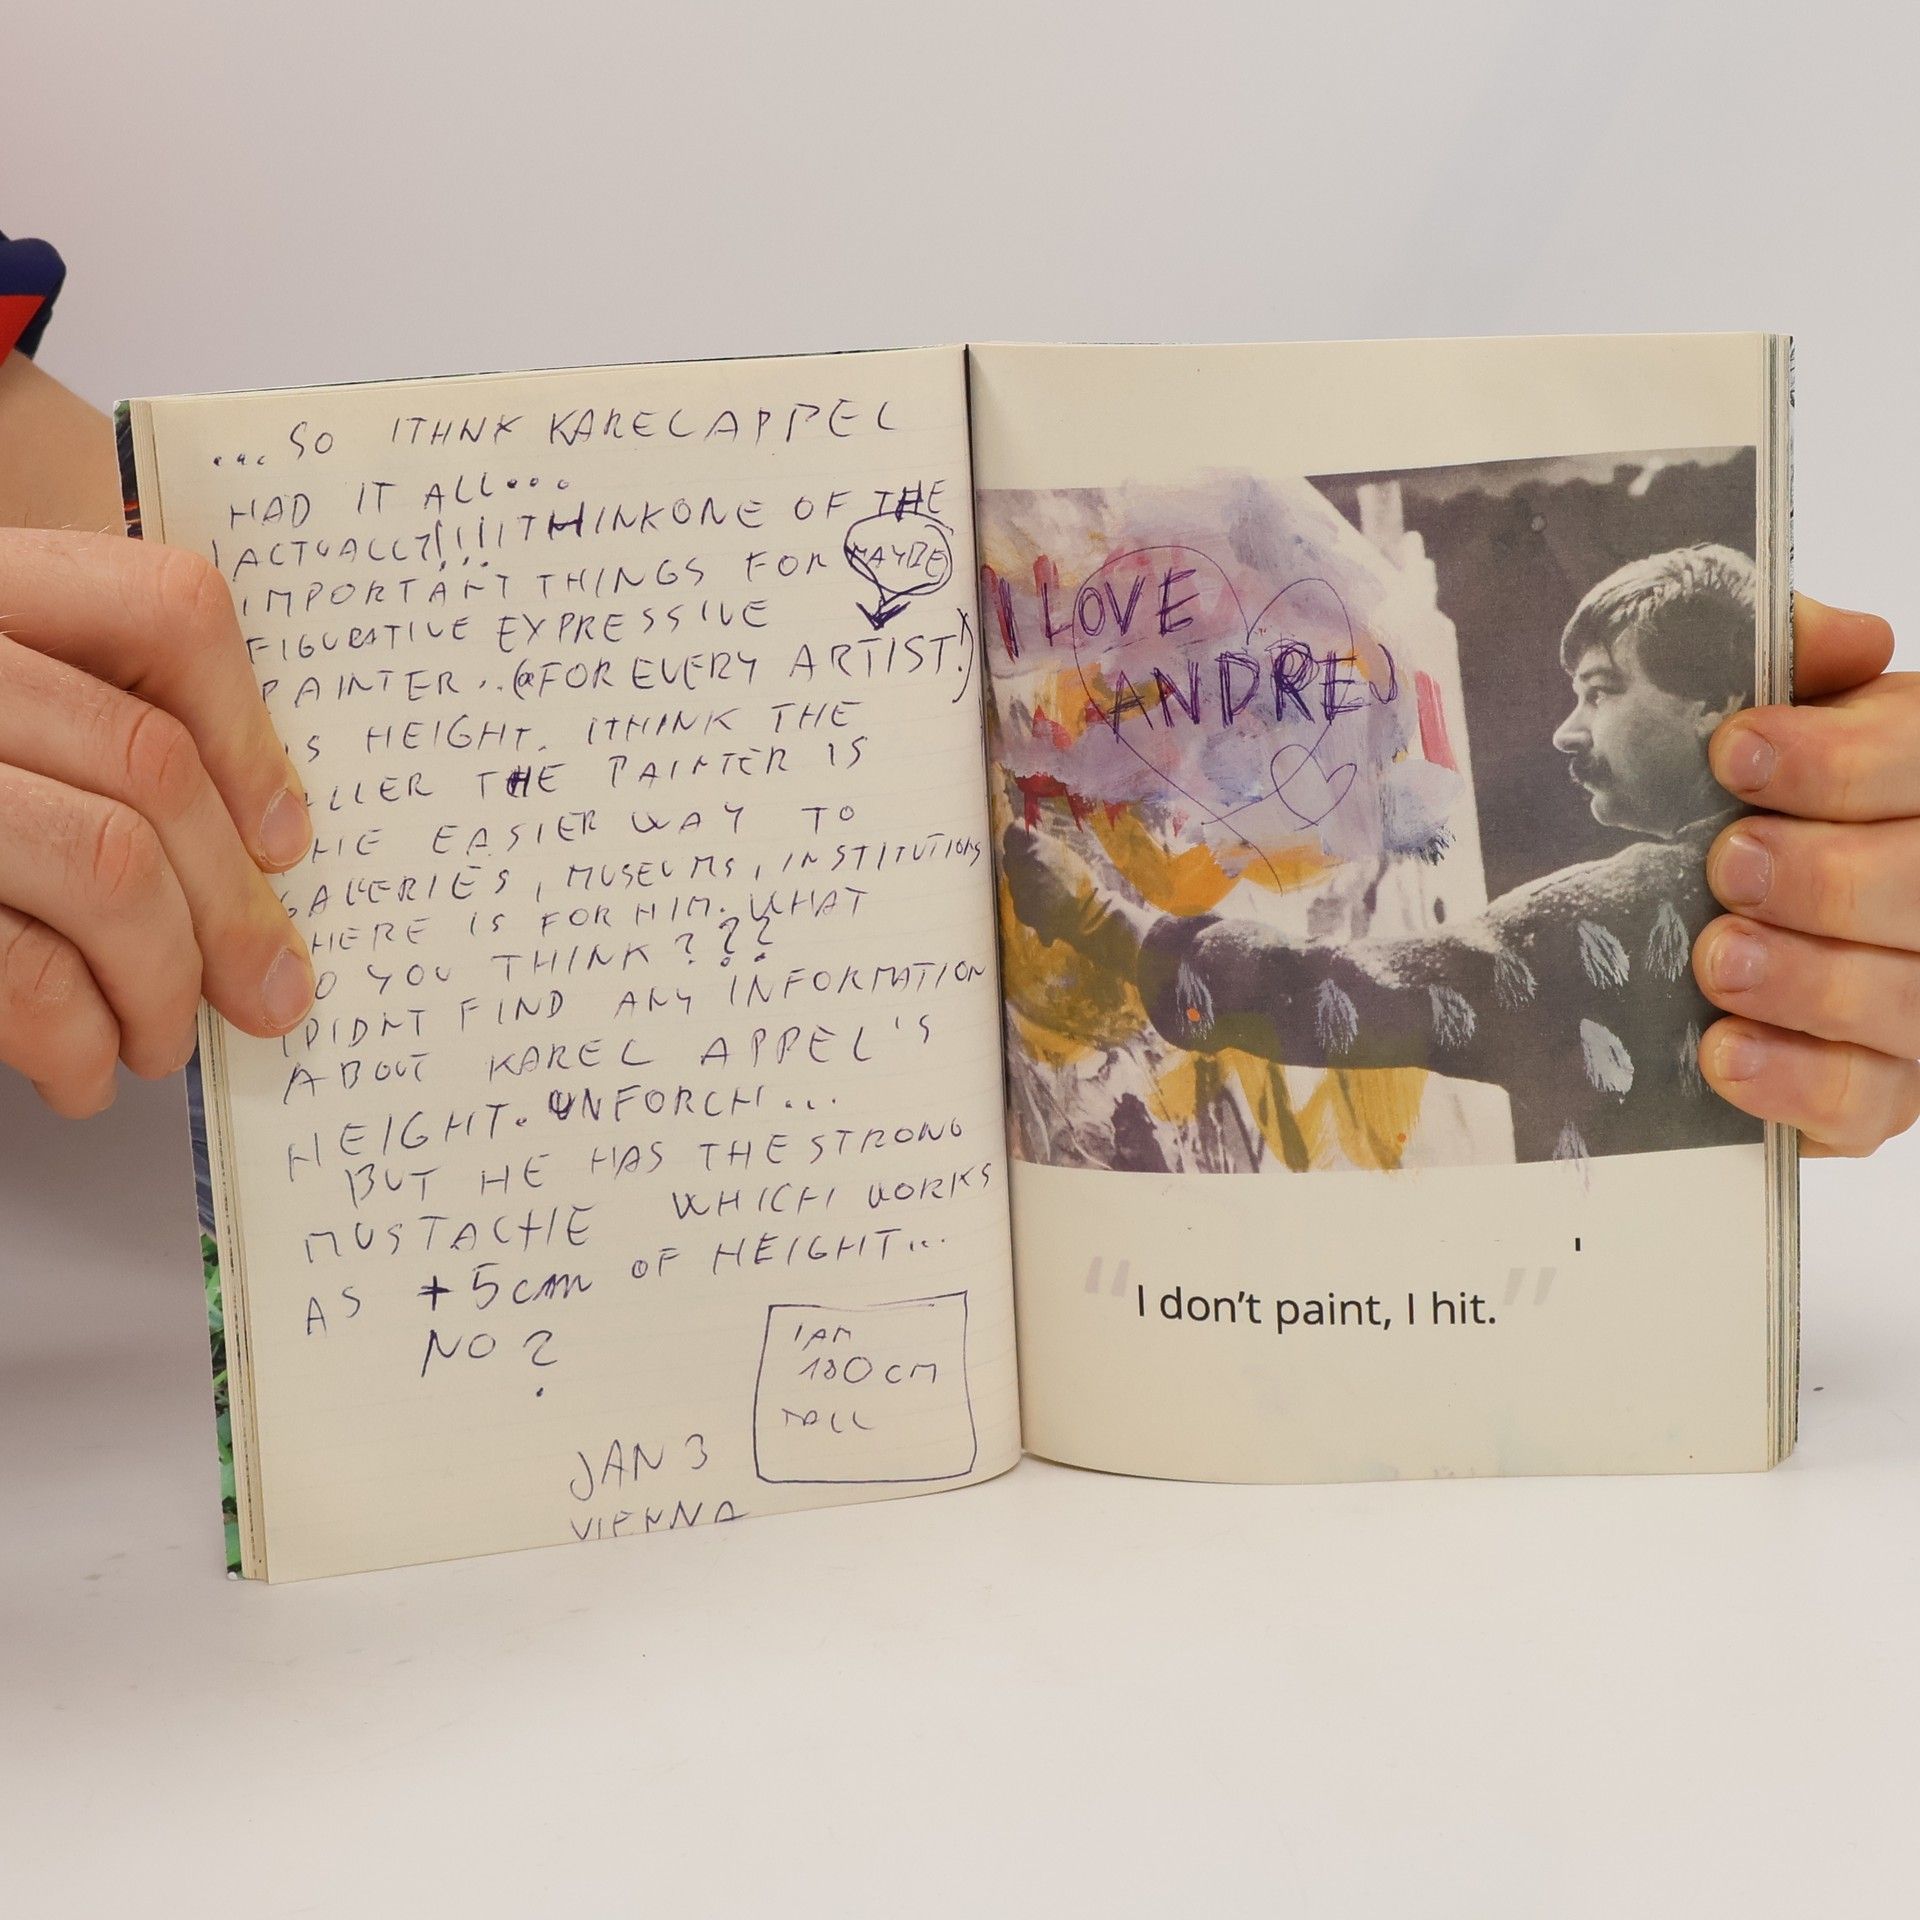 ...SO I THNK KAREL APPEL
HAD IT ALL...
ACTUALLY!!!! I THINK ONE OF THE
IMPORTANT THINGS FOR MAYBE
FIGURATIVE EXPRESSIVE
PAINTER..(FOR EVERY ARTIST!)
IS HEIGHT. I THINK THE
LLER THE PAINTER IS
HE EASIER WAY TO
GALLERIES, MUSEUMS, INSTITUTIONS
HERE IS FOR HIM. WHAT
O YOU THINK???
I DIDNT FIND ANY INFORMATION
ABOUT KAREL APPEL'S
HEIGHT. UNFORCH...
BUT HE HAS THE STRONG
MUSTACHE WHICH WORKS
AS +5cm OF HEIGHT...
NO?
I AM
180 CM
TALL
JAN 3
VIENNA
I LOVE
ANDREJ
“I don’t paint, I hit.”